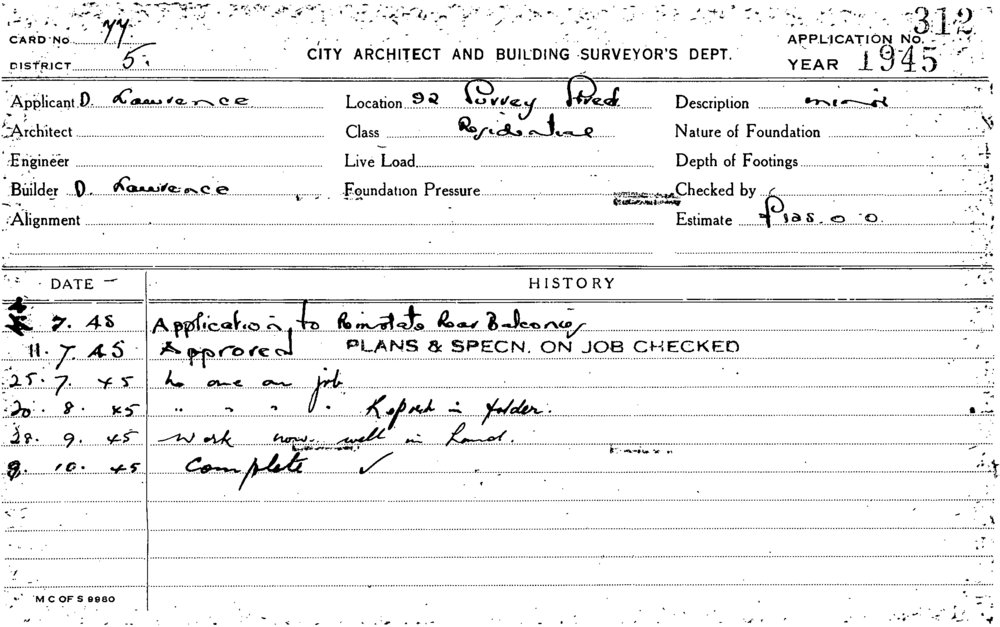 CARD NO 77. 312
APPLICATION NO.
DISTRICT 5. CITY ARCHITECT AND BUILDING SURVEYOR'S DEPT. YEAR 1945
Applicant D. Lawrence Location 92 Surrey Street Description minor
Architect Class Residential Nature of Foundation
Engineer Live Load Depth of Footings
Builder D. Lawrence Foundation Pressure Checked by
Alignment Estimate £125.0.0.
DATE HISTORY
7. 45 Application to Reinstate Rear Balconies
11. 7. 45 Approved PLANS & SPECN. ON JOB CHECKED
25. 7. 45 No one on job
20. 8. 45 " " " " Report in folder.
28. 9. 45 Work now well in hand.
9. 10. 45 Complete ✓
M C OF S 9980